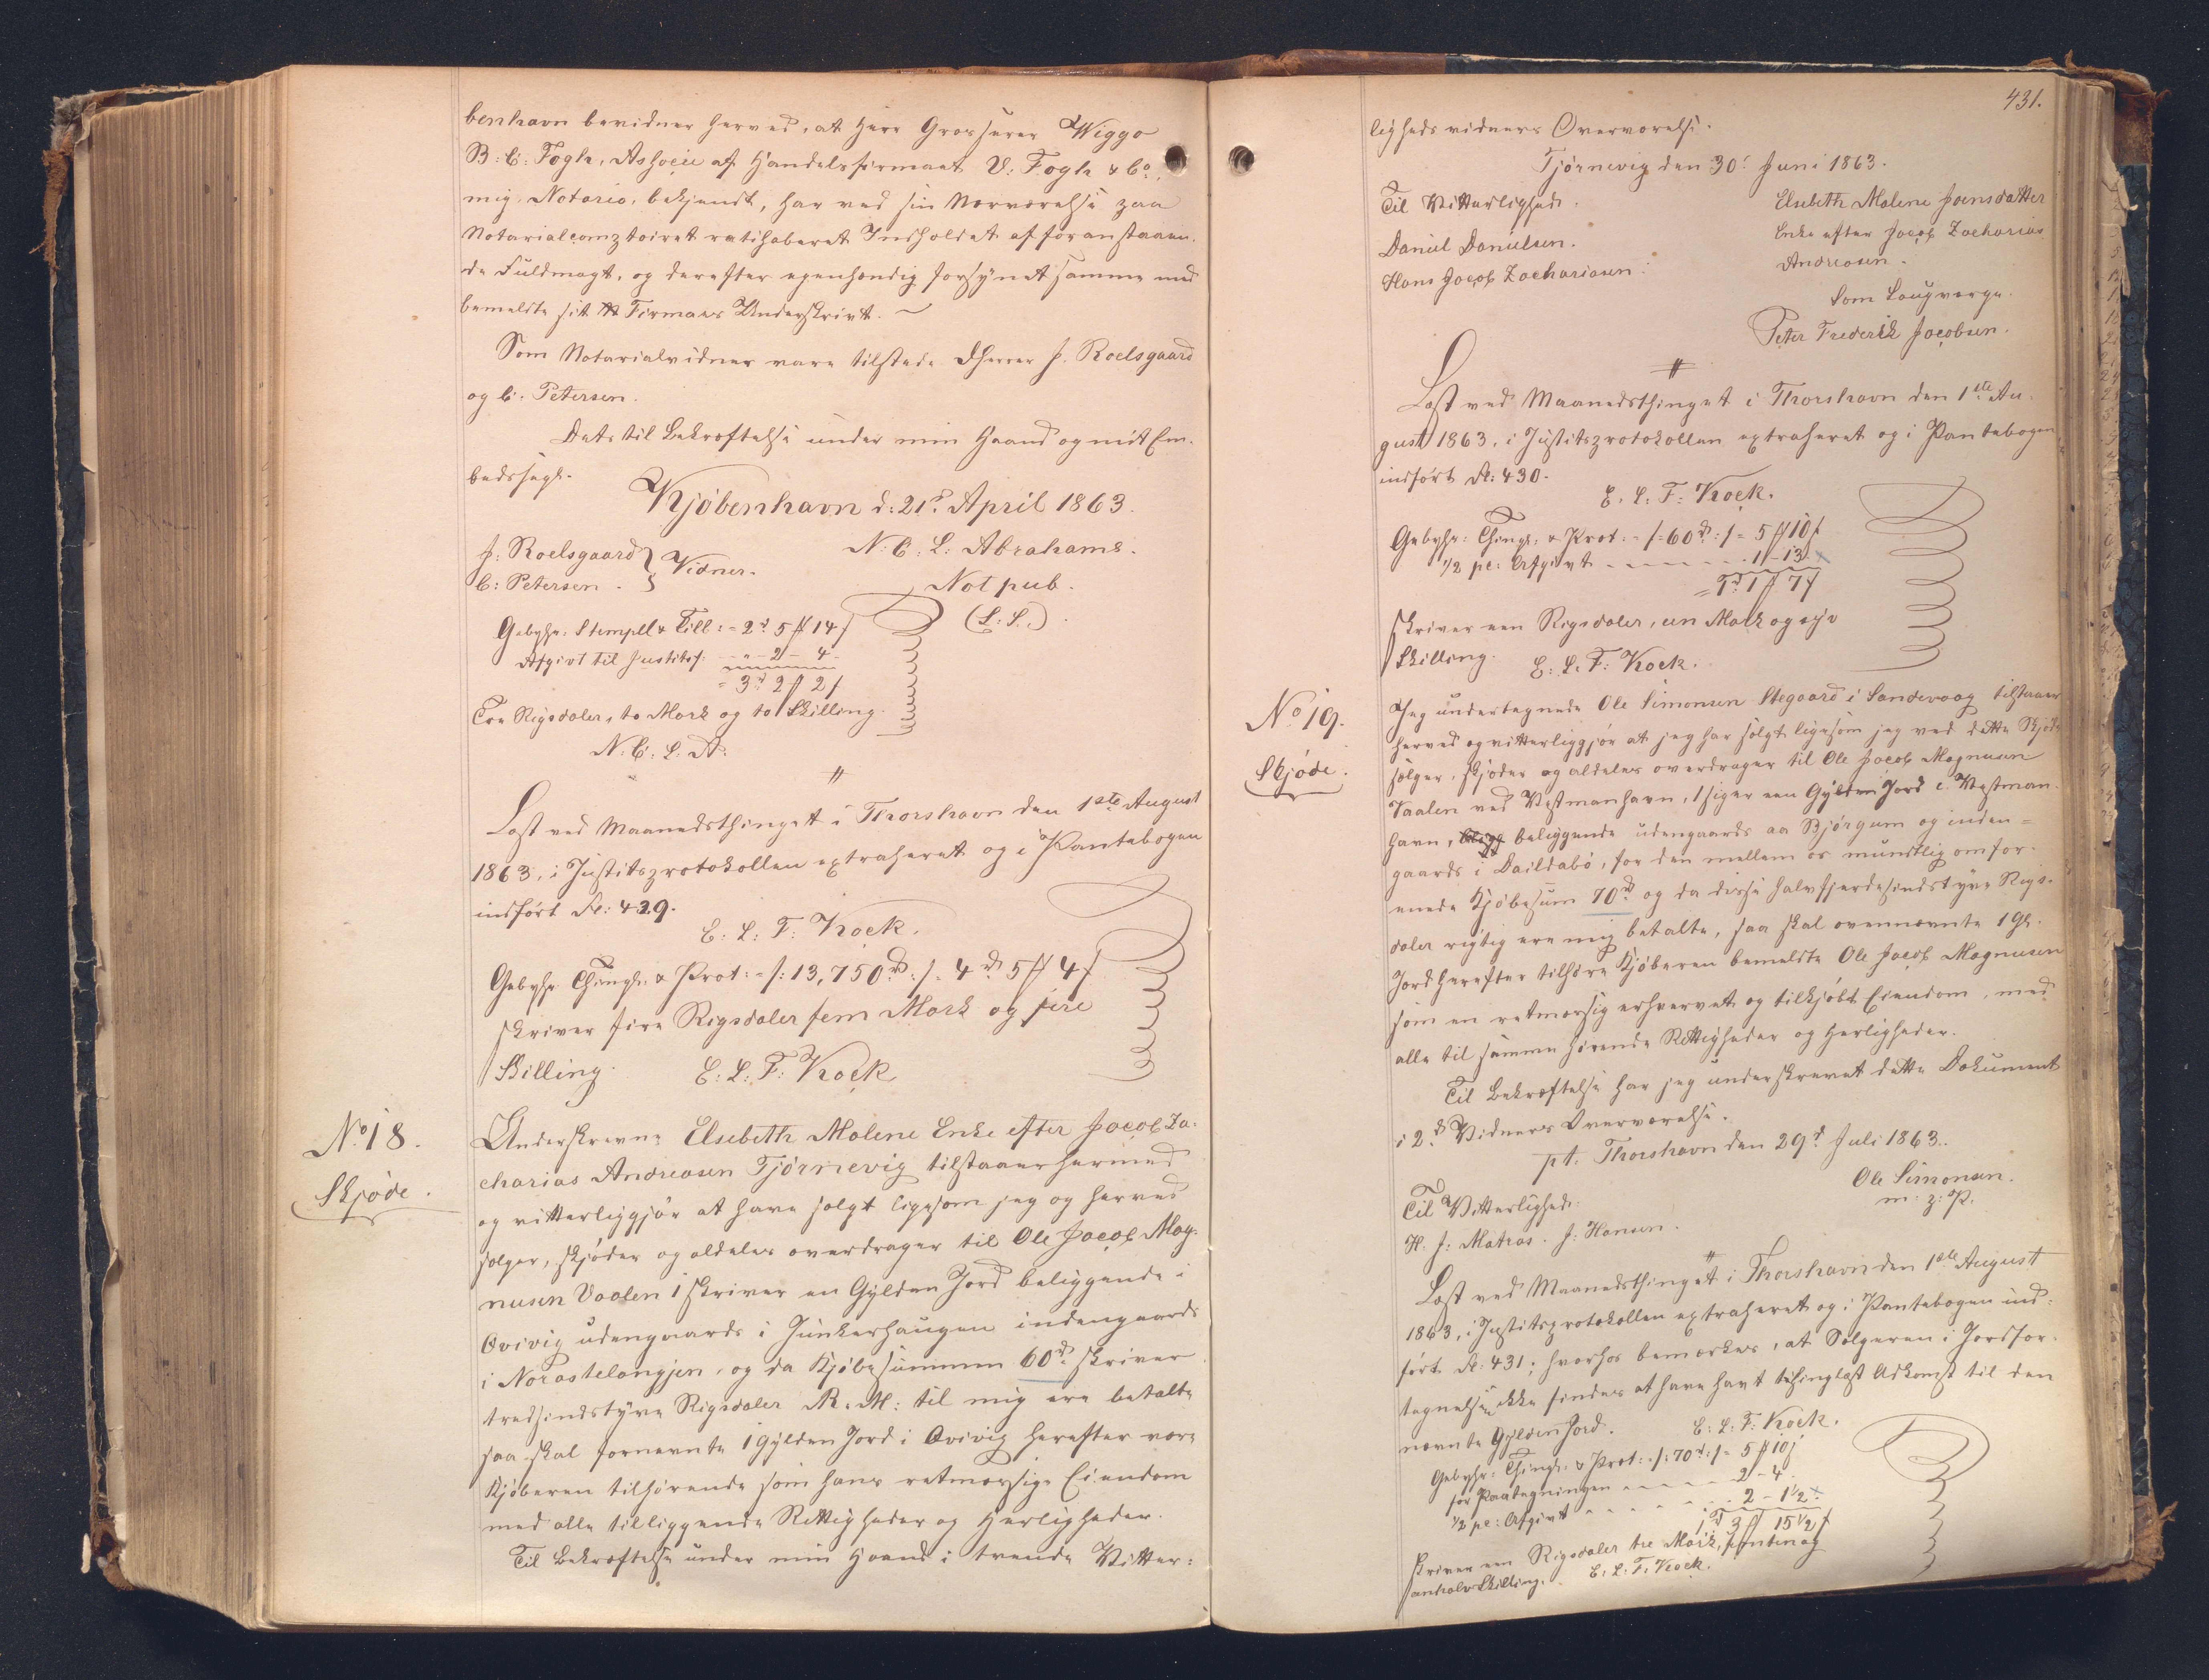 benhavn bevidner herved, at Herr Grosserer Wiggo
B: C: Fogh, Associe af Handelsfirmaet V: Fogh & Co,
mig Notario, bekjendt, har ved sin Nærværelse paa
Notarialcomptoiret ratihaberet Indholdet af foranstaaen-
de Fuldmagt, og derefter egenhændig forsynet samme med
bemeldte sit Firmaes Underskrivt. –
Som Notarialvidner vare tilstede Dherrer J. Roelsgaard
og C: Petersen.
Dets til Bekræftelse under min Haand og mit Em-
bedssegl.
Kjøbenhavn d: 21de April 1863.
J: Roelsgaard } Vidner.
C: Petersen.
N: C: L: Abrahams.
Not pub.
(L: S.)
Gebyhr: Stempell & Till: = 2rd 5 ℳ 14 ß
Afgivt til Justitsf. - - " - 2 - 4 -
= 3rd 2 ℳ 2 ß
Tre Rigsdaler, to Mark og to Skilling.
N: C: L: A:
#
Læst ved Maanedsthinget i Thorshavn den 1ste August
1863, i Justitsprotokollen extraheret og i Pantebogen
indført Fl: 429.
E: L: F: Kock.
Gebyhr Thingl: & Prot: - /: 13,750rd :/ = 4rd 5 ℳ 4 ß
skriver fire Rigsdaler fem Mark og fire
Skilling. E: L: F: Kock
No 18.
Skjøde.
Underskrevne Elsebeth Malene Enke efter Jacob Za-
charias Andreasen Tjørnevig tilstaaer hermed
og vitterliggjør at have solgt ligesom jeg og herved
sælger, skjøder og aldeles overdrager til Ole Jacob Mag-
nusen Vaalen 1 skriver en Gylden Jord beliggende i
Qvivig udengaards i Junkerhaugen indengaards
i Norastelangjen, og da Kjøbesummen 60rd skriver
tredsindstyve Rigsdaler R: M: til mig ere betalte
saa skal fornævnte 1 Gylden Jord i Qvivig herefter være
Kjøberen tilhørende som hans retmæssige Eiendom
med alle tilliggende Rettigheder og Herligheder.
Til Bekræftelse under min Haand i tvende Vitter-
431.
ligheds vidners Overværelse.
Tjørnevig den 30te Juni 1863.
Til Vitterlighed.
Daniel Danielsen.
Hans Jacob Zachariasen.
Elsebeth Malene Joensdatter
Enke efter Jacob Zacharias
Andreasen.
Som Laugværge.
Peter Frederik Jacobsen.
#
Læst ved Maanedsthinget i Thorshavn den 1ste Au-
gust 1863, i Justitsprotokollen extraheret og i Pantebogen
indført Fl: 430.
E: L: F: Kock.
Gebyhr: Thingl: & Prot: - /: 60rd :/ = 5 ℳ 10 ß
1/2 pc: Afgivt - - - - - - 1 - 13 -
= 1rd 1 ℳ 7 ß
skriver een Rigsdaler, een Mark og syv
Skilling. E: L: F: Kock.
No 19.
Skjøde.
Jeg undertegnede Ole Simonsen Stegaard i Sandevaag tilstaaer
herved og vitterliggjør at jeg har solgt ligesom jeg ved dette Skjøde
sælger, skjøder og aldeles overdrager til Ole Jacob Magnusen
Vaalen ved Vestmanhavn, 1 siger een Gylden Jord i Westman-
havn, beliggende udengaards aa Bjørgum og inden=
gaards i Daildabø, for den mellem os mundtlig omfor-
enede Kjøbesum 70rd og da disse halvfjerdesindstyve Rigs-
daler rigtig ere mig betalte, saa skal ovennævnte 1 Gl.
Jord herefter tilhøre Kjøberen bemeldte Ole Jacob Magnusen
som en retmæssig erhvervet og tilkjøbt Eiendom, med
alle til samme hørende Rettigheder og Herligheder.
Til Bekræftelse har jeg underskrevet dette Dokument
i 2de Vidners Overværelse.
pt. Thorshavn den 29de Juli 1863.
Til Vitterlighed.
H. J: Matras. J: Hansen.
Ole Simonsen.
m: p: P.
#
Læst ved Maanedsthinget i Thorshavn den 1ste August
1863, i Justitsprotokollen extraheret og i Pantebogen ind-
ført Fl: 431; hvorhos bemærkes, at Sælgeren i Jordfor-
tegnelsen ikke findes at have havt thinglæst Adkomst til den
nævnte Gylden Jord. E: L: F: Kock.
Gebyhr: Thingl: & Prot: /: 70rd :/ = 5 ℳ 10 ß
for Paategningen - - - - - 2 - 4
1/2 pc: Afgivt - - - - - - 2 - 1 1/2
1rd 3 ℳ 15 1/2 ß
skriver een Rigsdaler tre Mark, femten og
en halv Skilling. E: L: F: Kock.